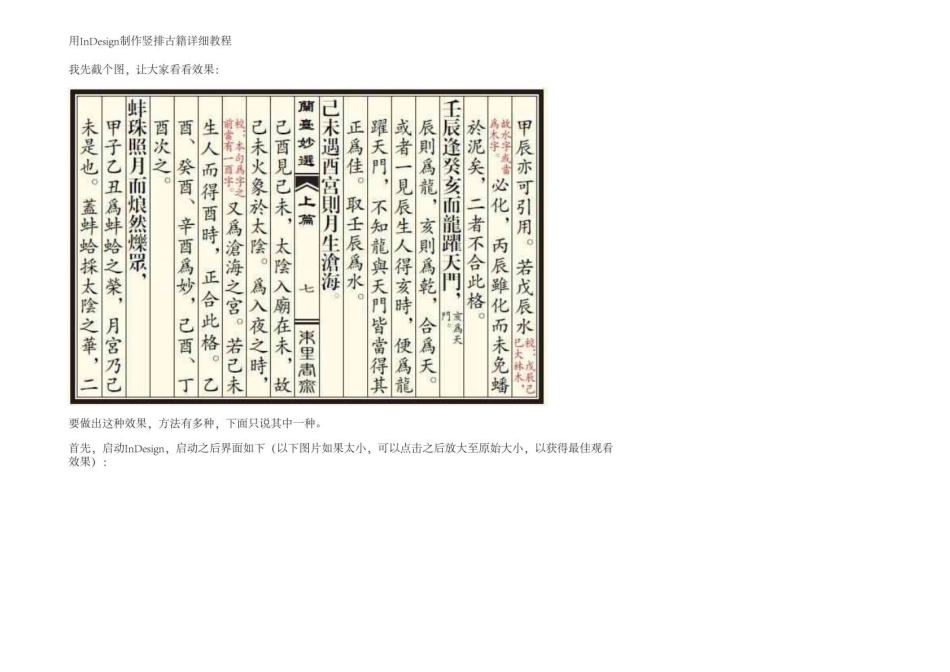 用InDesign制作竖排古籍详细教程
我先截个图，让大家看看效果：
甲辰亦可引用。若戊辰水校：戊辰己巳大林木，
故水字或當爲木字。必化，丙辰雖化而未免蟠
於泥矣，二者不合此格。
壬辰逢癸亥而龍躍天門，亥爲天門。
辰則爲龍，亥則爲乾，合爲天。
或者一見辰生人得亥時，便爲龍
躍天門，不知龍與天門皆當得其
正爲佳。取壬辰爲水。
己未遇酉宮則月生滄海。
蘭臺妙選 上篇 七 東里書齋
己酉見己未，太陰入廟在未，故
己未火象於太陰。爲入夜之時，
校：本句爲字之前當有一酉字。又爲滄海之宮。若己未
生人而得酉時，正合此格。乙
酉、癸酉、辛酉爲妙，己酉、丁
酉次之。
蚌珠照月而烺然爍眾，
甲子乙丑爲蚌蛤之榮，月宮乃己
未是也。蓋蚌蛤採太陰之華，二
要做出这种效果，方法有多种，下面只说其中一种。
首先，启动InDesign，启动之后界面如下（以下图片如果太小，可以点击之后放大至原始大小，以获得最佳观看
效果）：